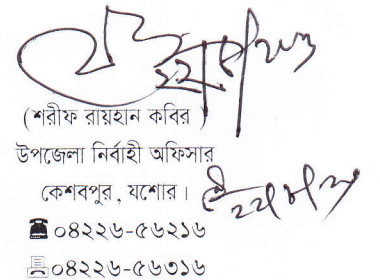 (শরীফ রায়হান কবির )
উপজেলা নির্বাহী অফিসার
কেশবপুর, যশোর।
☎০৪২২৬-৫৬২১৬
০৪২২৬-৫৬৩১৬